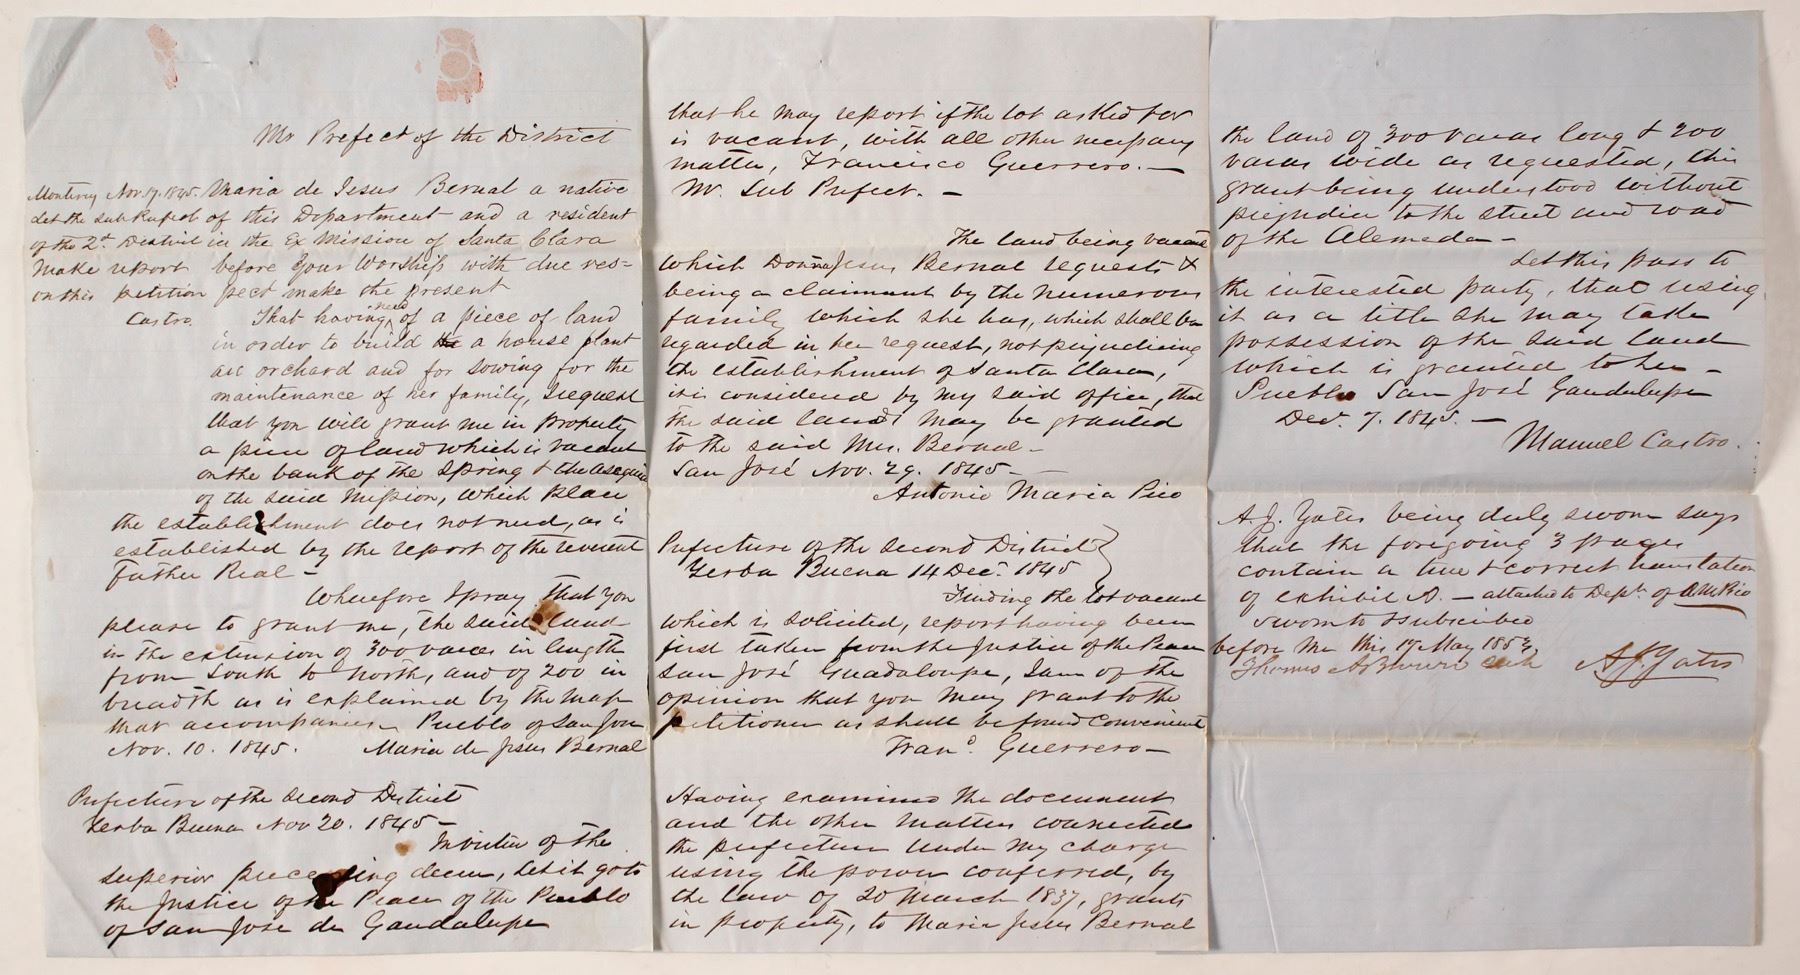 Mr Prefect of the District
Monterey Nov. 17. 1845.
Let the sub Prefect
of the 2d District
make report
on this petition
Castro.
Maria de Jesus Bernal a native
of this Department and a resident
in the Ex Mission of Santa Clara
before Your Worship with due res=
pect make the present
That having need of a piece of land
in order to build a house plant
an orchard and for sowing for the
maintenance of her family, I request
that you will grant me in property
a piece of land which is vacant
on the bank of the Spring & the asequia
of the said Mission, which place
the establishment does not need, as is
established by the report of the reverent
Father Real -
Wherefore I pray that you
please to grant me, the said land
in the extension of 300 varas in length
from South to North, and of 200 in
breadth as is explained by the map
that accompanies - Pueblo of San Jose
Nov. 10. 1845. Maria de Jesus Bernal
Prefecture of the Second District
Yerba Buena Nov 20. 1845 -
In virtue of the
superior preceeding decree, Let it go to
the Justice of the Peace of the Pueblo
of San Jose de Gaudalupe
that he may report if the lot asked for
is vacant, with all other necessary
matter, Francisco Guerrero. -
Mr. Sub Prefect. -
The land being vacant
which Donna Jesus Bernal requests &
being a claimant by the numerous
family which she has, which shall be
regarded in her request, not prejudicing
the establishment of Santa Clara,
it is considered by my said office, that
the said land may be granted
to the said Mrs. Bernal -
San José Nov. 29. 1845 -
Antonio Maria Pico
Prefecture of the Second District }
Yerba Buena 14 Dec. 1845
Finding the lot vacant
which is solicited, report having been
first taken from the Justice of the Peace
San José Guadaloupe, I am of the
opinion that you may grant to the
petitioner as shall be found convenient
Fran.o Guerrero -
Having examined the document
and the other matters connected
the prefecture under my charge
using the power conferred, by
the law of 20 March 1837, grants
in property, to Maria Jesus Bernal
the land of 300 varas long & 200
varas wide as requested, this
grant being understood without
prejudice to the street and road
of the Alemeda -
Let this pass to
the interested party, that using
it as a title she may take
possession of the said land
which is granted to her -
Pueblo San José Gaudalupe
Dec. 7. 1845. -
Manuel Castro.
A. J. Yates being duly sworn says
that the foregoing 3 pages
contain a true & correct translation
of exhibit A. - attached to Dept. of A M Pico
Sworn to & subscribed
before me this 17 May 1853,
Thomas A
A J. Yates